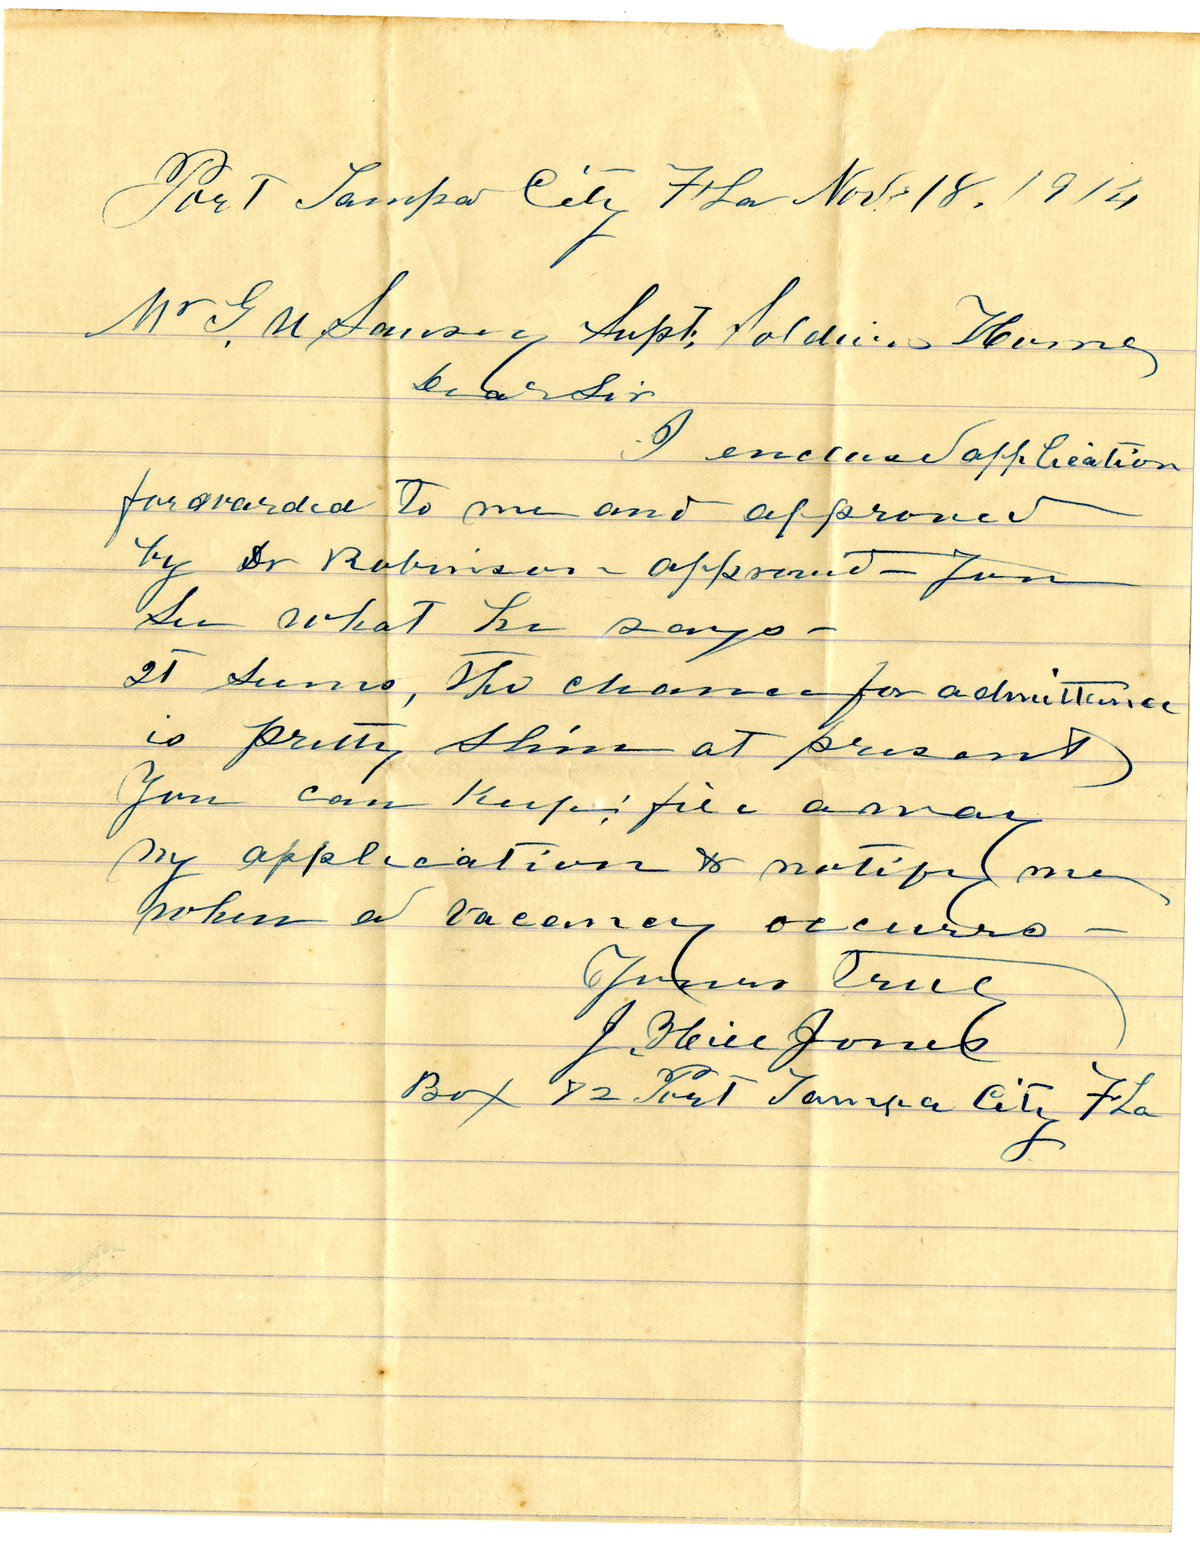 Port Tampa City Fla Nov. 18. 1914
Mr G. N. Saussy Supt. Soldiers Home
Dear Sir
I enclosed application
forwarded to me and approved
by Dr Robinson approved — You
See what he says —
It Seems, the chance for admittance
is pretty Slim at present
You can keep; file away
my application & notify me
when a vacancy occurrs —
Yours Truly
J. Hill Jones
Box 82 Port Tampa City Fla